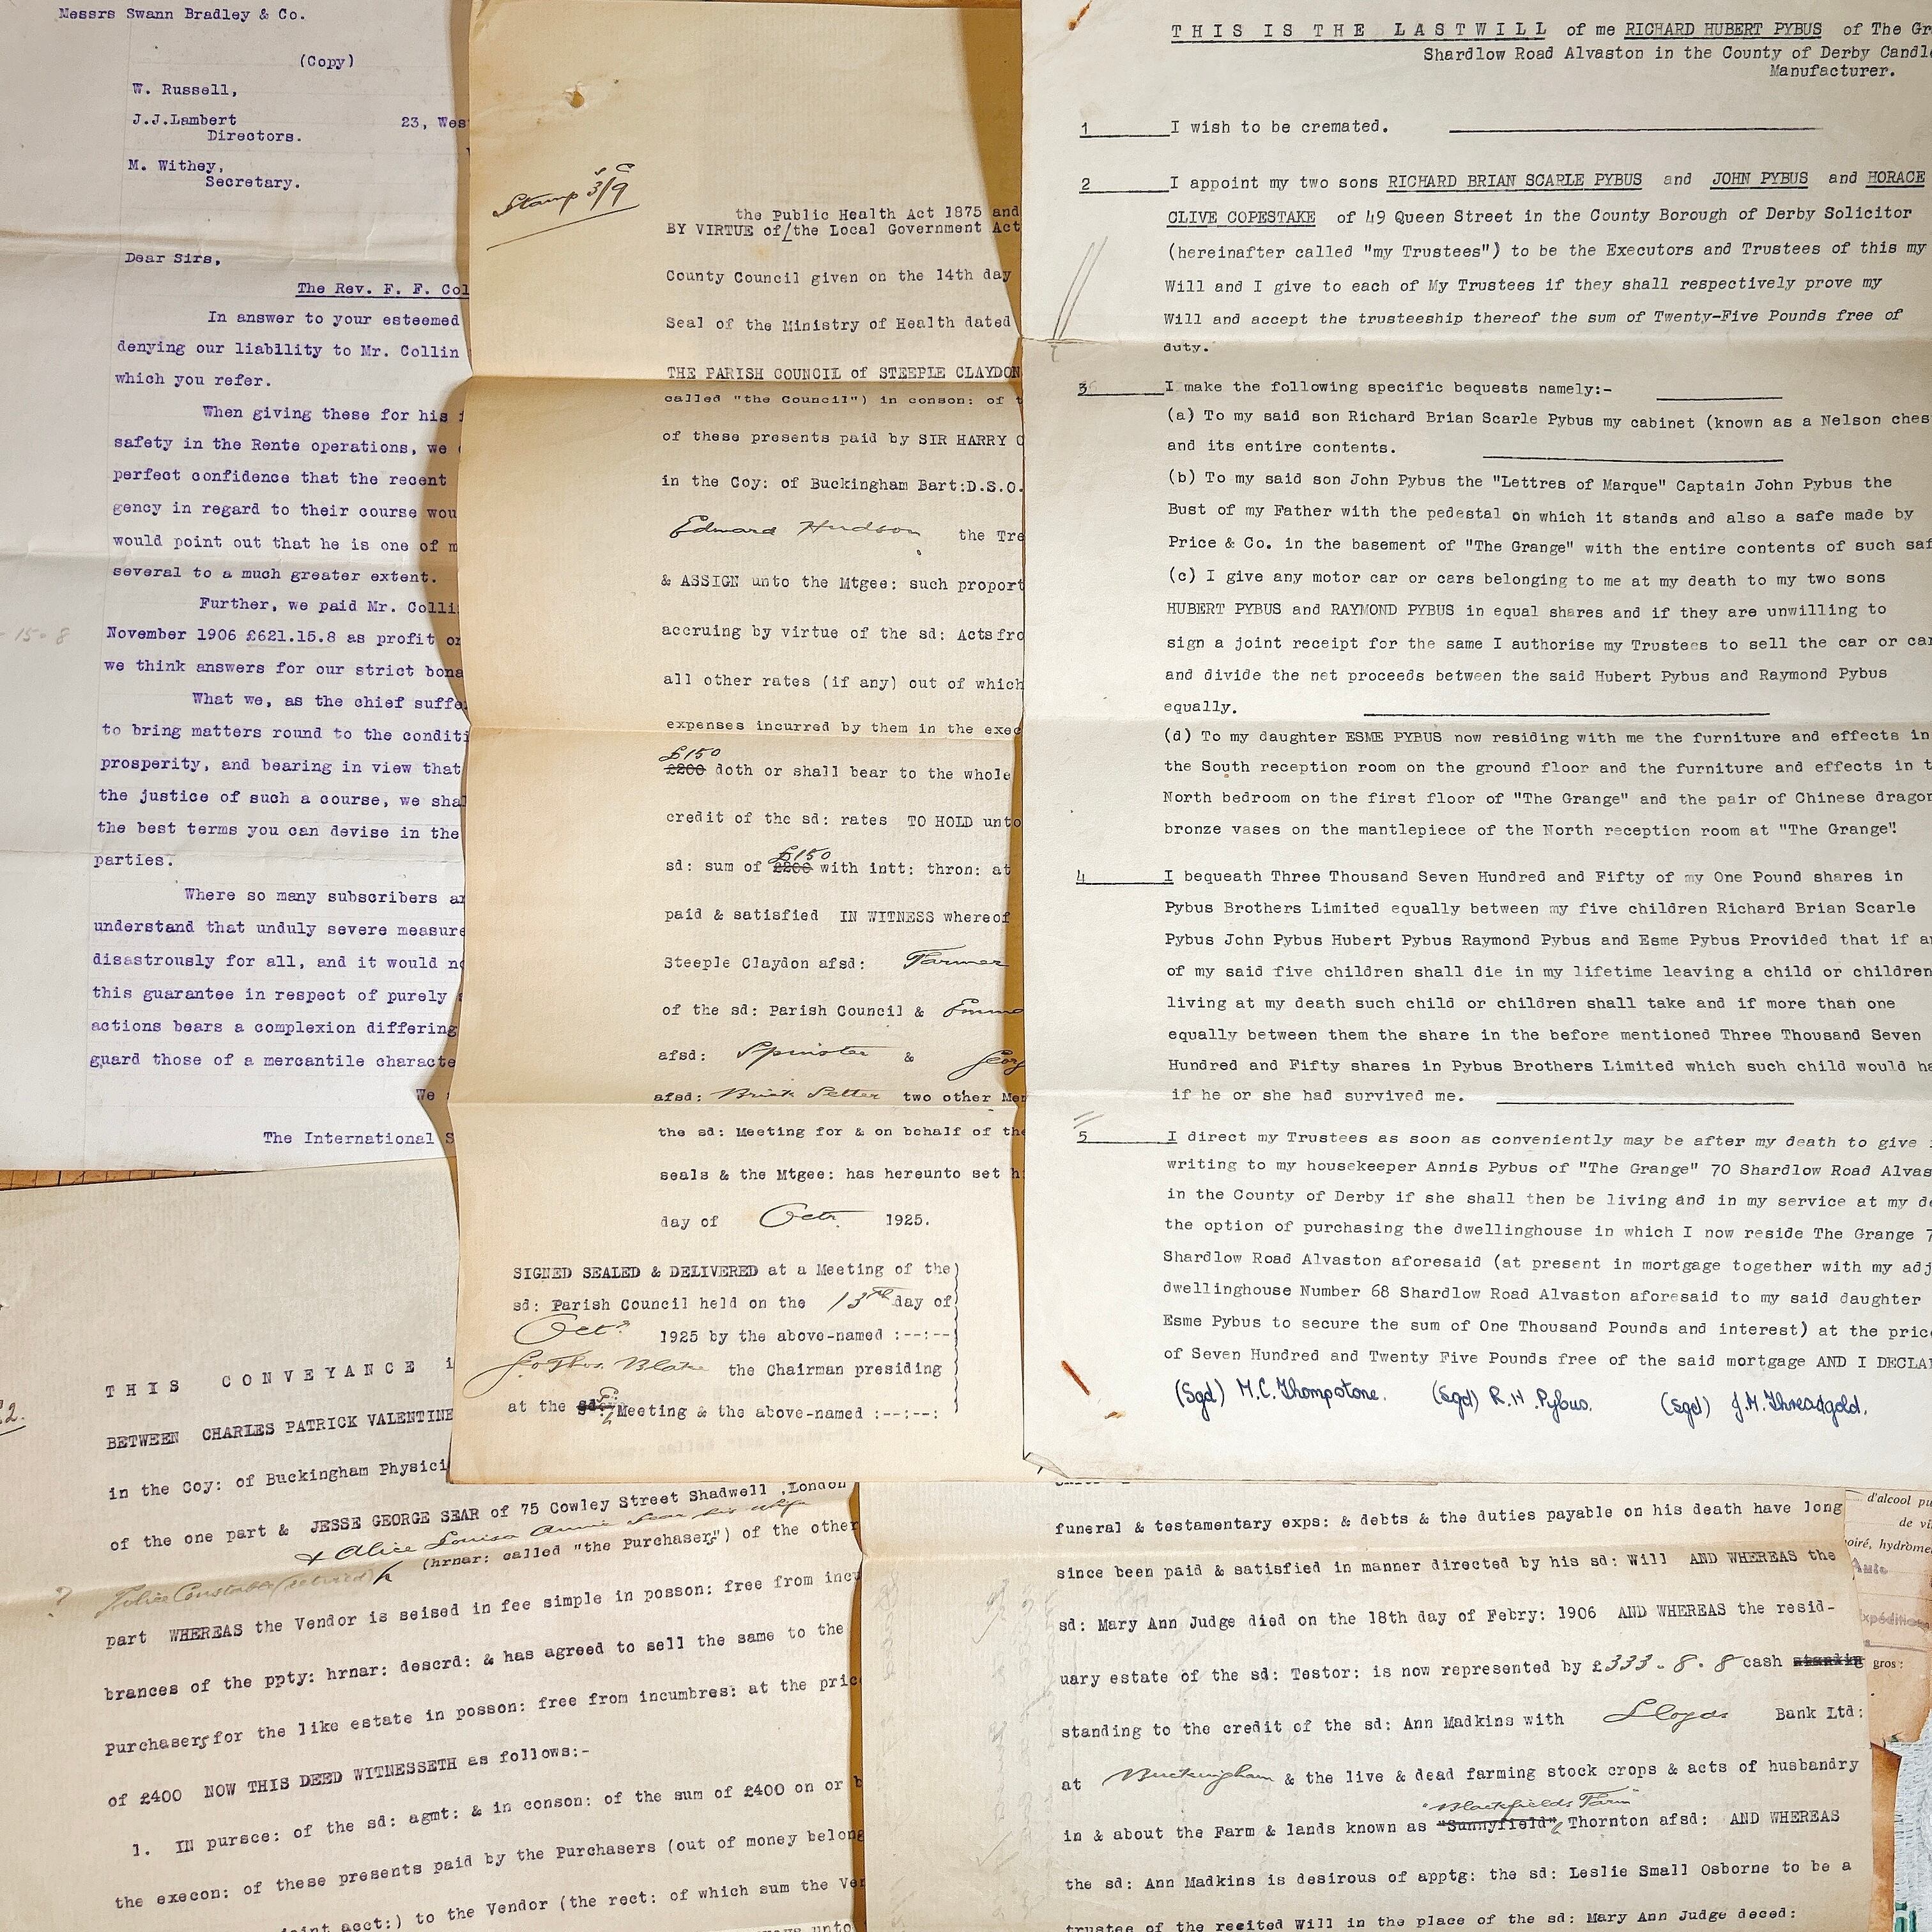 Messrs Swann Bradley & Co.
(Copy)
W. Russell,
J.J.Lambert
Directors.
23, Wes
M. Withey,
Secretary.
Dear Sirs,
The Rev. F. F. Col
In answer to your esteemed
denying our liability to Mr. Collin
which you refer.
When giving these for his
safety in the Rente operations, we
perfect confidence that the recent
gency in regard to their course wou
would point out that he is one of m
several to a much greater extent.
Further, we paid Mr. Colli
- 15 - 8
November 1906 £621.15.8 as profit or
we think answers for our strict bona
What we, as the chief suffe
to bring matters round to the conditi
prosperity, and bearing in view that
the justice of such a course, we sha
the best terms you can devise in the
parties.
Where so many subscribers ar
understand that unduly severe measure
disastrously for all, and it would no
this guarantee in respect of purely
actions bears a complexion differing
guard those of a mercantile characte
We
The International S
Stamp 3/9
the Public Health Act 1875 and
BY VIRTUE of/the Local Government Act
County Council given on the 14th day
Seal of the Ministry of Health dated
THE PARISH COUNCIL of STEEPLE CLAYDON
called "the Council") in conson: of t
of these presents paid by SIR HARRY
in the Coy: of Buckingham Bart:D.S.O.
Edward Hudson the Tre
& ASSIGN unto the Mtgee: such proport
accruing by virtue of the sd: Acts fro
all other rates (if any) out of which
expenses incurred by them in the exec
£150
£200 doth or shall bear to the whole
credit of the sd: rates TO HOLD unto
£150
sd: sum of £200 with intt: thron: at
paid & satisfied IN WITNESS whereof
Steeple Claydon afsd: Farmer
of the sd: Parish Council & Emma
afsd: Spinster & Geor
afsd: Brick Setter two other Mem
the sd: Meeting for & on behalf of the
seals & the Mtgee: has hereunto set h
day of Octr. 1925.
SIGNED SEALED & DELIVERED at a Meeting of the)
sd: Parish Council held on the 13th day of
Oct? 1925 by the above-named :--:--
Thos. Blake the Chairman presiding
at the sd: Meeting & the above-named :--:--:
THIS IS THE LASTWILL of me RICHARD HUBERT PYBUS of The Gr
Shardlow Road Alvaston in the County of Derby Candle
Manufacturer.
1 I wish to be cremated.
2 I appoint my two sons RICHARD BRIAN SCARLE PYBUS and JOHN PYBUS and HORACE
CLIVE COPESTAKE of 49 Queen Street in the County Borough of Derby Solicitor
(hereinafter called "my Trustees") to be the Executors and Trustees of this my
Will and I give to each of My Trustees if they shall respectively prove my
Will and accept the trusteeship thereof the sum of Twenty-Five Pounds free of
duty.
3 I make the following specific bequests namely:-
(a) To my said son Richard Brian Scarle Pybus my cabinet (known as a Nelson ches
and its entire contents.
(b) To my said son John Pybus the "Lettres of Marque" Captain John Pybus the
Bust of my Father with the pedestal on which it stands and also a safe made by
Price & Co. in the basement of "The Grange" with the entire contents of such saf
(c) I give any motor car or cars belonging to me at my death to my two sons
HUBERT PYBUS and RAYMOND PYBUS in equal shares and if they are unwilling to
sign a joint receipt for the same I authorise my Trustees to sell the car or car
and divide the net proceeds between the said Hubert Pybus and Raymond Pybus
equally.
(d) To my daughter ESME PYBUS now residing with me the furniture and effects in
the South reception room on the ground floor and the furniture and effects in t
North bedroom on the first floor of "The Grange" and the pair of Chinese dragon
bronze vases on the mantlepiece of the North reception room at "The Grange".
4 I bequeath Three Thousand Seven Hundred and Fifty of my One Pound shares in
Pybus Brothers Limited equally between my five children Richard Brian Scarle
Pybus John Pybus Hubert Pybus Raymond Pybus and Esme Pybus Provided that if an
of my said five children shall die in my lifetime leaving a child or children
living at my death such child or children shall take and if more than one
equally between them the share in the before mentioned Three Thousand Seven
Hundred and Fifty shares in Pybus Brothers Limited which such child would ha
if he or she had survived me.
5 I direct my Trustees as soon as conveniently may be after my death to give
writing to my housekeeper Annis Pybus of "The Grange" 70 Shardlow Road Alvas
in the County of Derby if she shall then be living and in my service at my de
the option of purchasing the dwellinghouse in which I now reside The Grange 7
Shardlow Road Alvaston aforesaid (at present in mortgage together with my adj
dwellinghouse Number 68 Shardlow Road Alvaston aforesaid to my said daughter
Esme Pybus to secure the sum of One Thousand Pounds and interest) at the pric
of Seven Hundred and Twenty Five Pounds free of the said mortgage AND I DECLAR
(Sgd) M.C.Thompstone. (Sgd) R.H.Pybus. (Sgd) J.M.Threadgold.
2.
THIS CONVEYANCE i
BETWEEN CHARLES PATRICK VALENTINE
in the Coy: of Buckingham Physici
of the one part & JESSE GEORGE SEAR of 75 Cowley Street Shadwell ,London
& Alice Louisa Annie Sear his wife
Police Constable (retired) (hrnar: called "the Purchasers") of the other
part WHEREAS the Vendor is seised in fee simple in posson: free from incu
brances of the ppty: hrnar: descrd: & has agreed to sell the same to the
Purchasers for the like estate in posson: free from incumbres: at the pric
of £400 NOW THIS DEED WITNESSETH as follows:-
1. IN pursce: of the sd: agmt: & in conson: of the sum of £400 on or b
the execon: of these presents paid by the Purchasers (out of money belong
joint acct:) to the Vendor (the rect: of which sum the Ven
unto
funeral & testamentary exps: & debts & the duties payable on his death have long
since been paid & satisfied in manner directed by his sd: Will AND WHEREAS the
sd: Mary Ann Judge died on the 18th day of Febry: 1906 AND WHEREAS the resid-
uary estate of the sd: Testor: is now represented by £333-8-8 cash standing
standing to the credit of the sd: Ann Madkins with Lloyds Bank Ltd:
at Buckingham & the live & dead farming stock crops & acts of husbandry
"Blackfields Farm"
in & about the Farm & lands known as "Sunnyfield" Thornton afsd: AND WHEREAS
the sd: Ann Madkins is desirous of apptg: the sd: Leslie Small Osborne to be a
trustee of the recited Will in the place of the sd: Mary Ann Judge deced:
d'alcool pu
de vi
oiré, hydrome
gros: